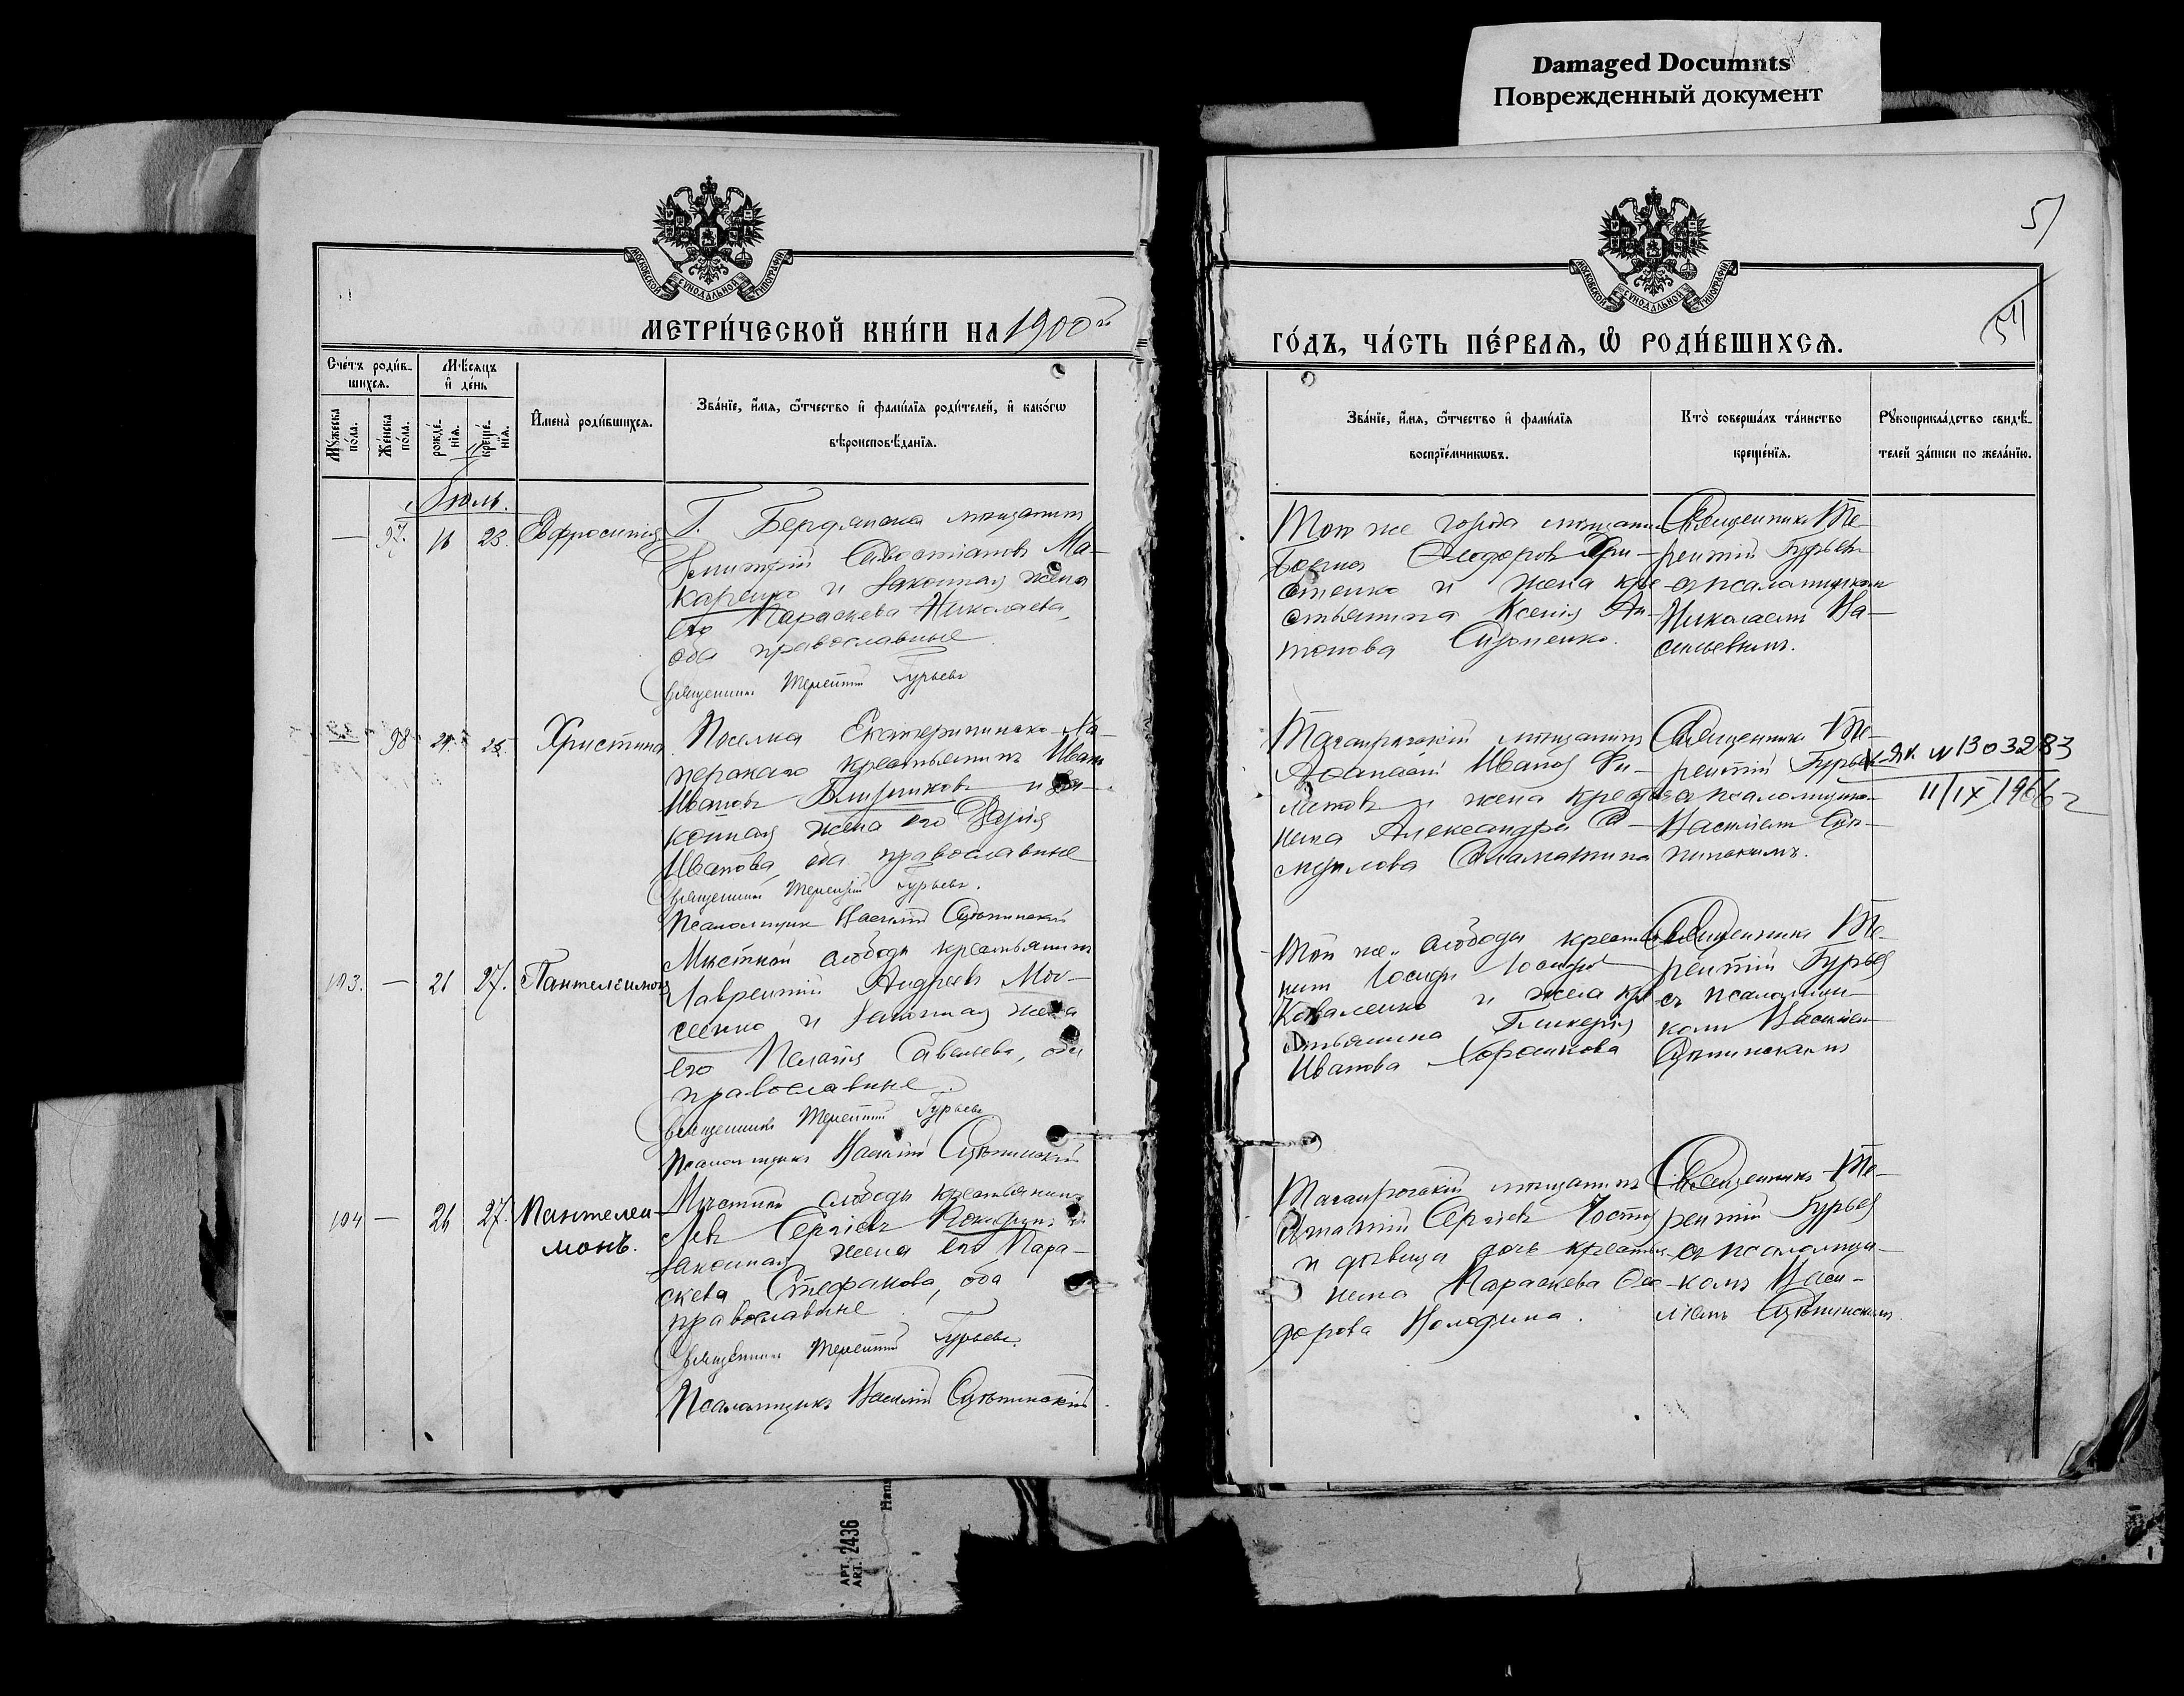 Damaged Documnts
Поврежденный документ
МОСКОВСКОЙ СУНОДАЛЬНОЙ ТИПОГРАФІИ
МЕТРИ́ЧЕСКОЙ КНИ́ГИ НА 1900 й
Сче́тъ роди́в-
шихсѧ.
Мѣ́сѧцъ
и҆ де́нь
Мꙋ́жеска
по́ла.
Же́нска
по́ла.
рожде́-
нїѧ.
креще́-
нїѧ.
И҆мена̀ роди́вшихсѧ.
Зва́нїе, и҆́мѧ, ѻ҆́тчество и҆ фами́лїѧ роди́телей, и҆ како́гѡ
вѣроисповѣ́данїѧ.
Іюль.
— 97. 16 23. Евфросинія
Г. Бердянска мѣщанинъ
Димитрій Савостіановъ Ма-
каренко и законная жена
его Параскева Николаева,
оба православные
Священникъ Терентій Гурьевъ
— 98 24. 25. Христина
Поселка Екатерининско-Ха-
перскаго крестьянинъ Иванъ
Ивановъ и за-
конная жена его Дарія
Иванова, оба православные
Священникъ Терентій Гурьевъ.
Псаломщикъ Василій Сцепинскій
103. — 26 27. Пантелеимонъ
Мѣстной слободы крестьянинъ
Лаврентій Андреевъ Мов-
сеенко и законная жена
его Пелагія Савельева, оба
православные.
Священникъ Терентій Гурьевъ
Псаломщикъ Василій Сцепинскій
104 — 26 27. Пантелеи-
монъ.
Мѣстной слободы крестьянинъ
Левъ Сергіевъ и
законная жена его Пара-
скева Стефанова, оба
православные
Священникъ Терентій Гурьевъ.
Псаломщикъ Василій Сцепинскій.
51
МОСКОВСКОЙ СУНОДАЛЬНОЙ ТИПОГРАФІИ
51
ГО́ДЪ, ЧА́СТЬ ПЕ́РВАѦ, Ѽ РОДИ́ВШИХСѦ.
Зва́нїе, и҆́мѧ, ѻ҆́тчество и҆ фами́лїѧ
воспрїе́мникѡвъ.
Кто̀ соверша́лъ та́инство
креще́нїѧ.
Рꙋкоприкла́дство свидѣ́-
телей за́писи по жела́нїю.
Того же города мѣщанинъ
Феодоровъ Хри-
стенко и жена кре-
стьянина Ксенія Ан-
тонова
Священникъ Те-
рентій Гурьевъ
съ псаломщикомъ
Николаемъ Ва-
сильевымъ.
Таганрогскій мѣщанинъ
Афанасій Ивановъ Фи-
липовъ и жена крестья-
нина Александра Са-
муилова
Священникъ Те-
рентій Гурьевъ
съ псаломщико-
Василіемъ Сце-
пинскимъ.
N 1303283
11/IX 1966 г
Той же слободы крестья-
нинъ Іосифъ
Коваленко и жена кре-
стьянина Гликерія
Иванова Хорошкова
Священникъ Те-
рентій Гурьевъ
съ псаломщи-
комъ Василіемъ
Сцепинскимъ
Таганрогскій мѣщанинъ
Игнатій Сергіевъ
и дѣвица дочь крестья-
нина Параскева Фео-
дорова
Священникъ Те-
рентій Гурьевъ
съ псаломщи-
комъ Васи-
ліемъ Сцепинскимъ.
АРТ.
ART. 2436